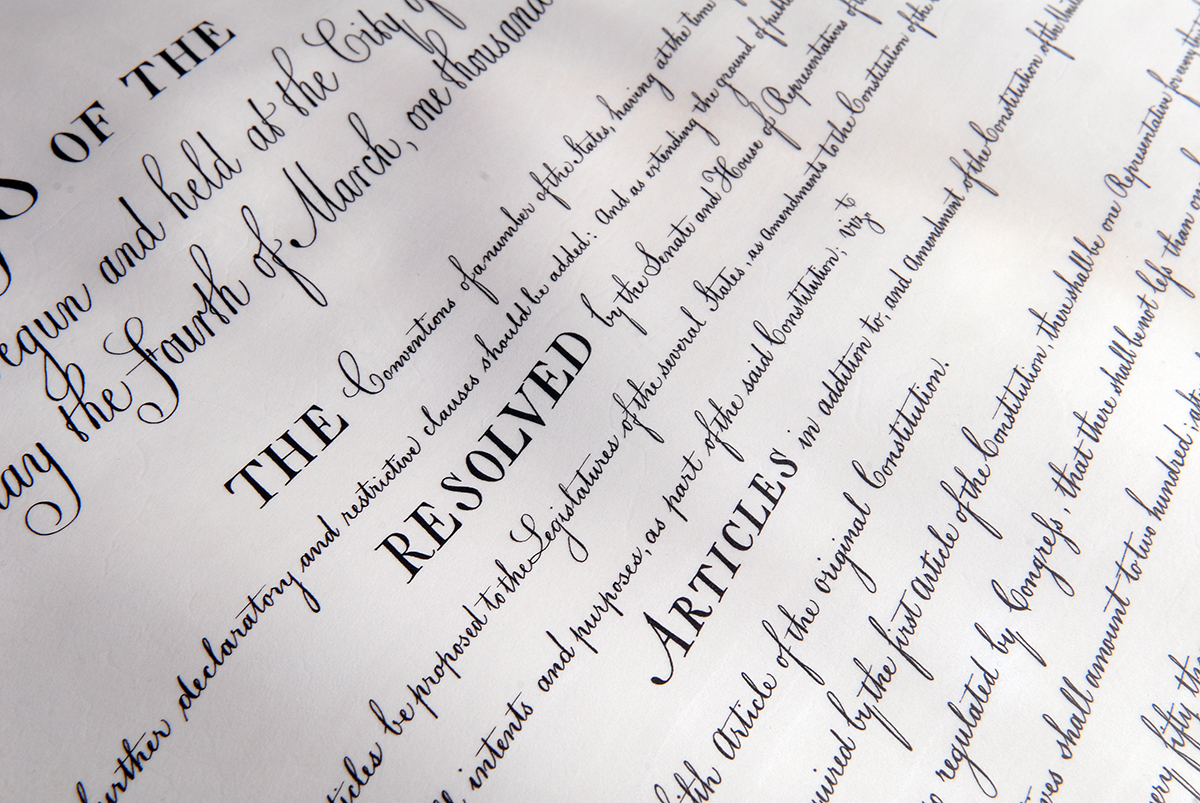 OF THE
begun and held at the City of
the Fourth of March, one thousand
THE Conventions of a number of the States, having at the time
further declaratory and restrictive clauses should be added: And as extending the ground of
RESOLVED by the Senate and House of Representatives of
be proposed to the Legislatures of the several States, as amendments to the Constitution of the
intents and purposes, as part of the said Constitution; vizt
ARTICLES in addition to, and Amendment of the Constitution of the
Article of the original Constitution.
by the first Article of the Constitution, there shall be one Representative for
regulated by Congress, that there shall be not less than one
shall amount to two hundred
fifty